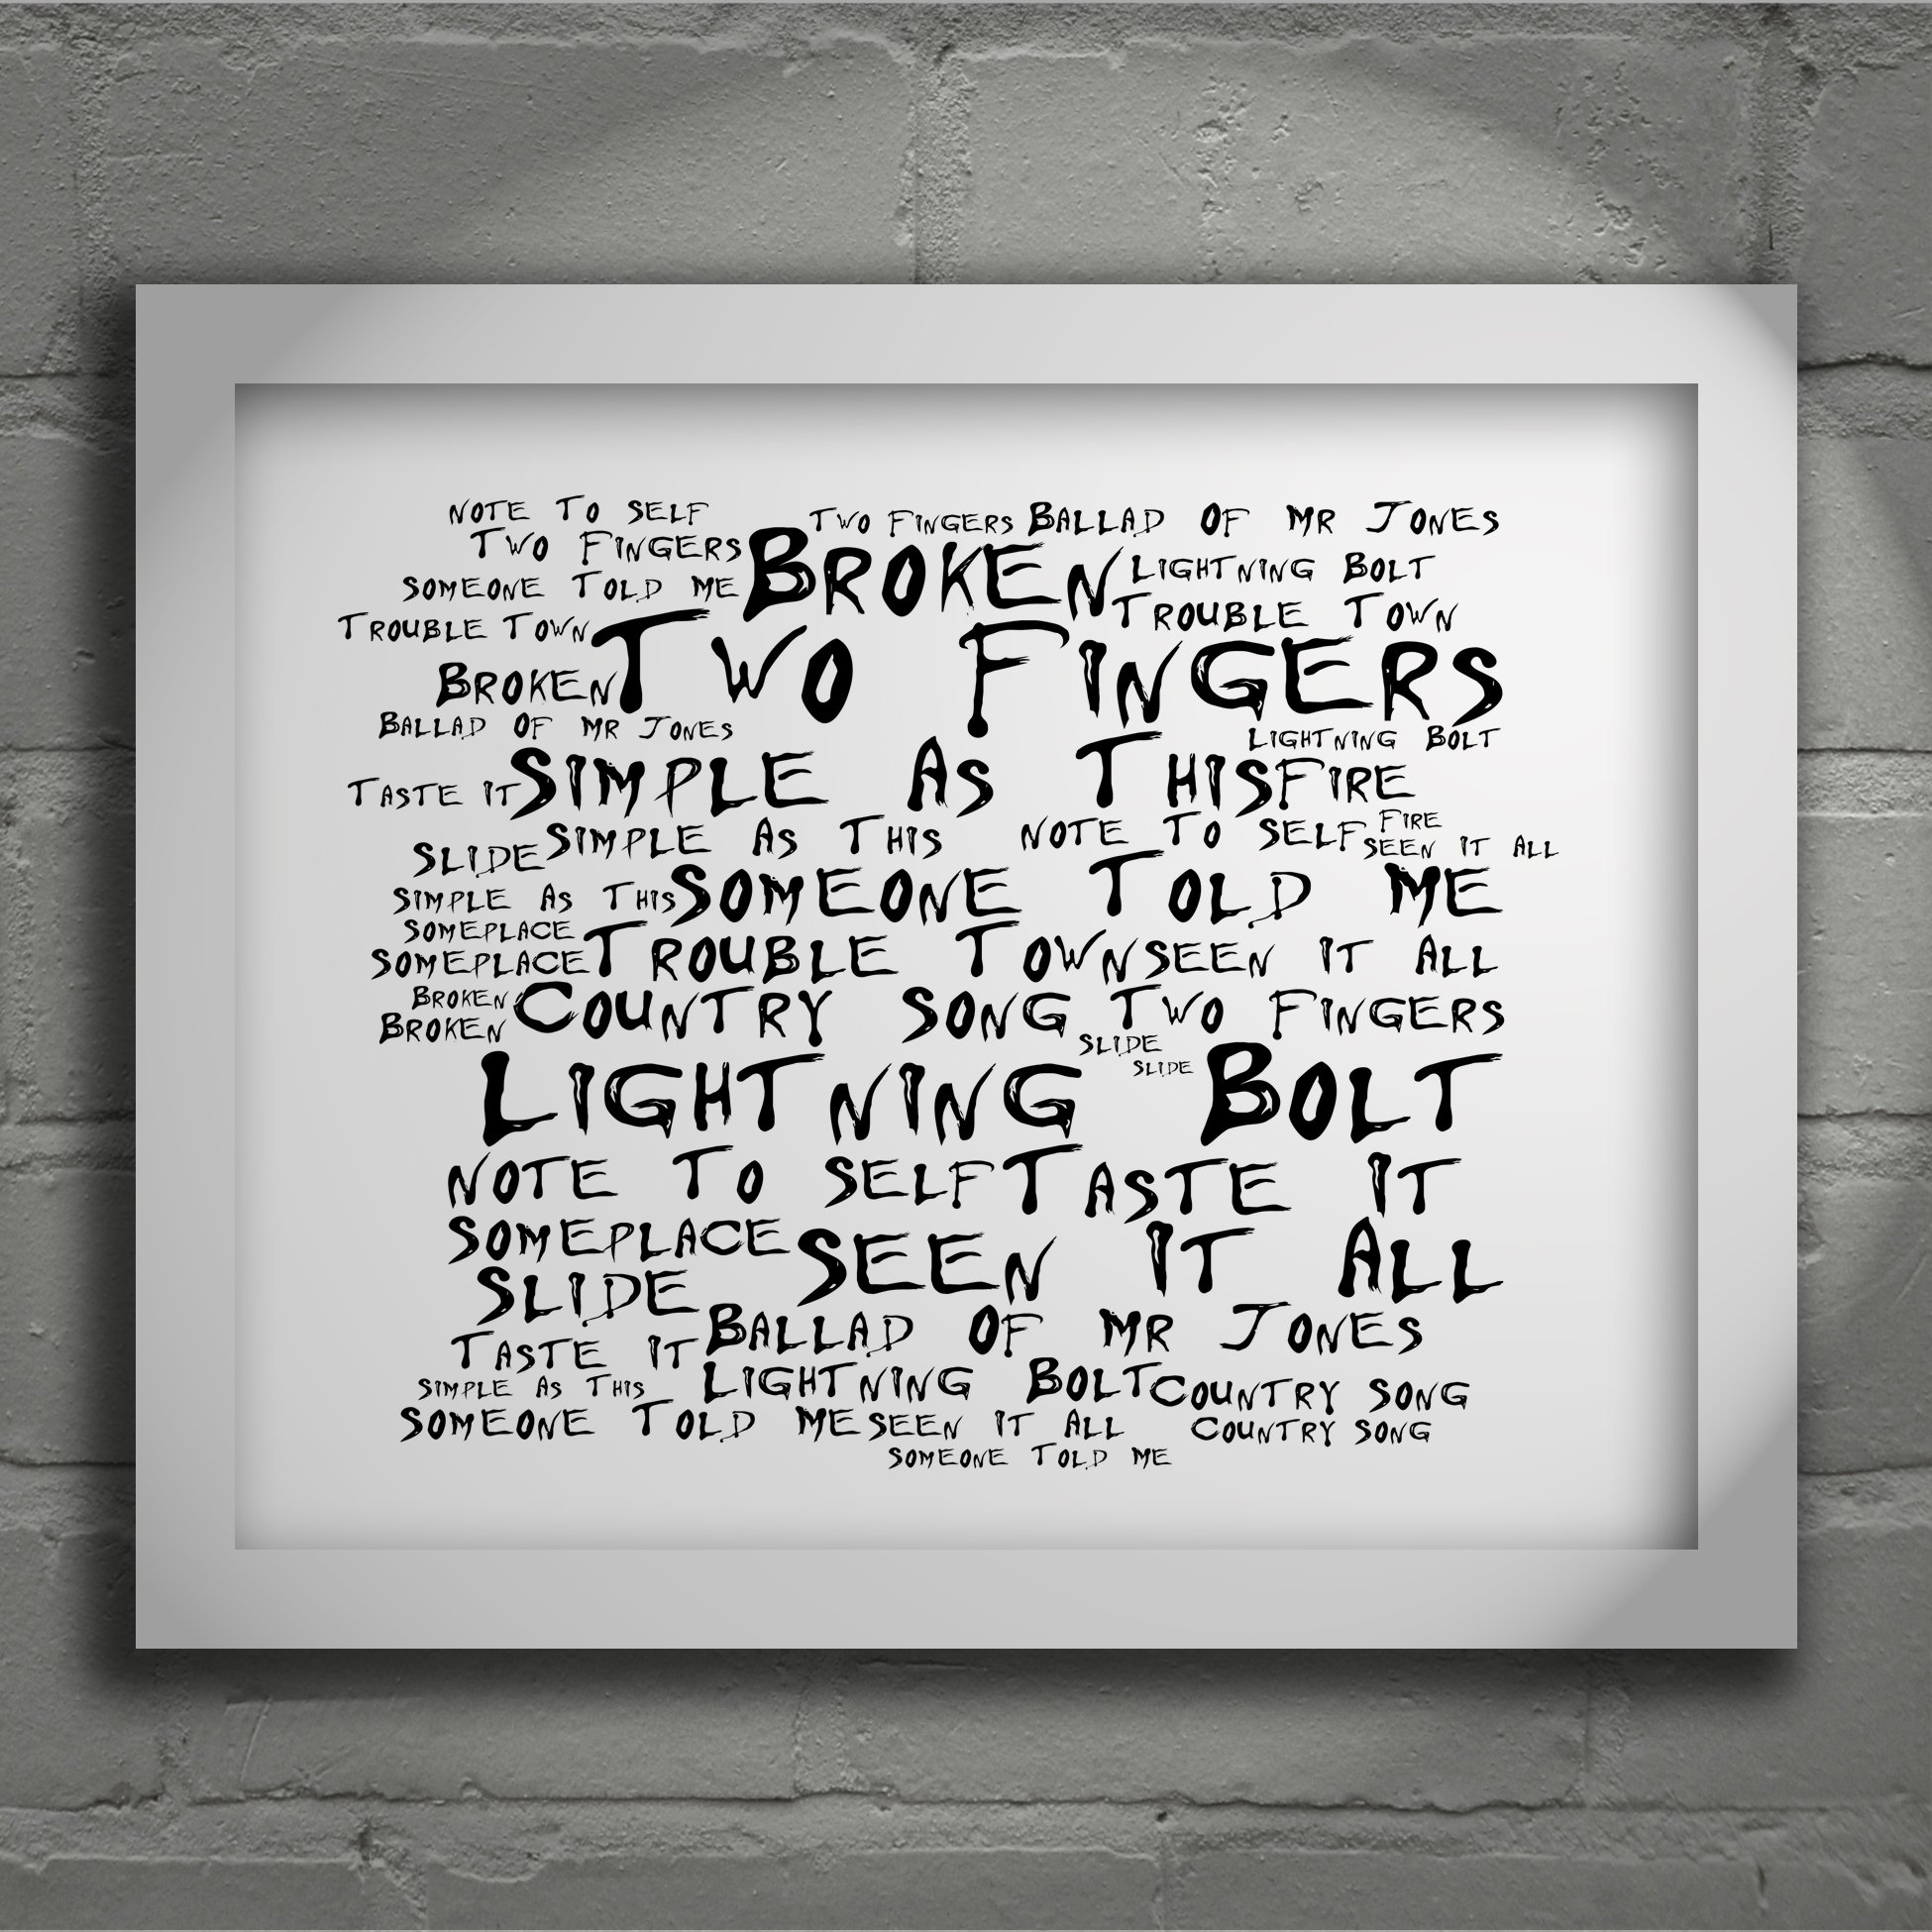 NOTE TO SELF
TWO FINGERS BALLAD OF MR JONES
TWO FINGERS
BROKEN LIGHTNING BOLT
SOMEONE TOLD ME
TROUBLE TOWN TROUBLE TOWN
TWO FINGERS
BROKEN
BALLAD OF MR JONES LIGHTNING BOLT
TASTE IT SIMPLE AS THIS FIRE
SLIDE SIMPLE AS THIS NOTE TO SELF FIRE
SEEN IT ALL
SIMPLE AS THIS SOMEONE TOLD ME
SOMEPLACE
SOMEPLACE TROUBLE TOWN SEEN IT ALL
BROKEN COUNTRY SONG TWO FINGERS
BROKEN
SLIDE
SLIDE
LIGHTNING BOLT
NOTE TO SELF TASTE IT
SOMEPLACE SEEN IT ALL
SLIDE
BALLAD OF MR JONES
TASTE IT
SIMPLE AS THIS LIGHTNING BOLT COUNTRY SONG
SOMEONE TOLD ME SEEN IT ALL COUNTRY SONG
SOMEONE TOLD ME